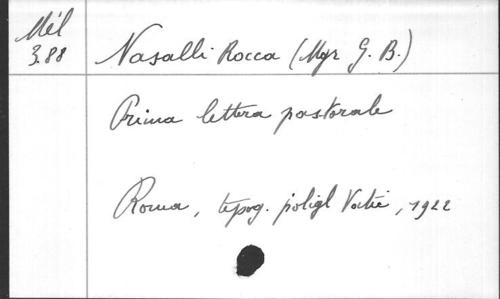 Mél
3.88
Nasalli-Rocca (Mgr G. B.)
Prima lettera pastorale
Roma, tipog. poligl Vatic, 1922